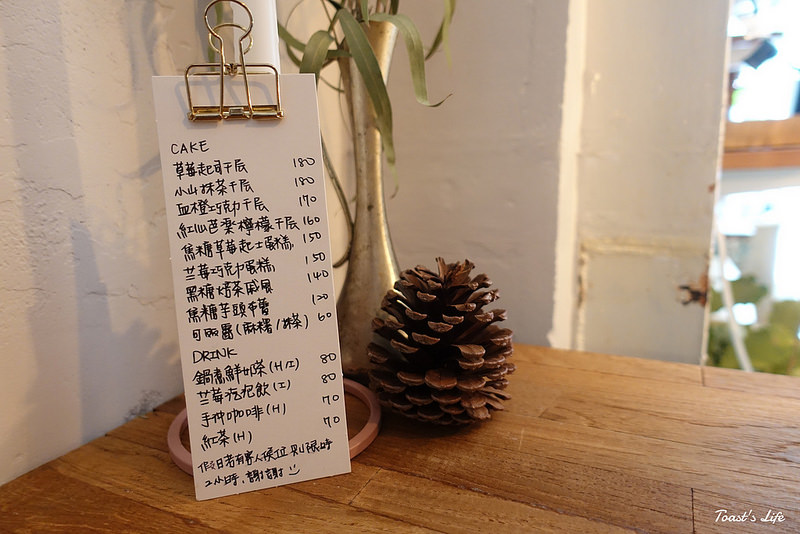 CAKE
草莓起司千层 180
小山抹茶千层 180
血橙巧克力千层 170
紅心芭樂檸檬千层 160
焦糖草莓起士蛋糕 150
兰莓巧克力蛋糕 150
黑糖焙茶戚風 140
焦糖芋頭布蕾 120
可麗露(麻糬/抹茶) 60
DRINK
鍋煮鮮奶茶(H/I) 80
兰莓汽泡飲(I) 80
手冲咖啡(H) 70
紅茶(H) 70
假日若有客人候位則限時
2小時,謝謝
Toast's Life